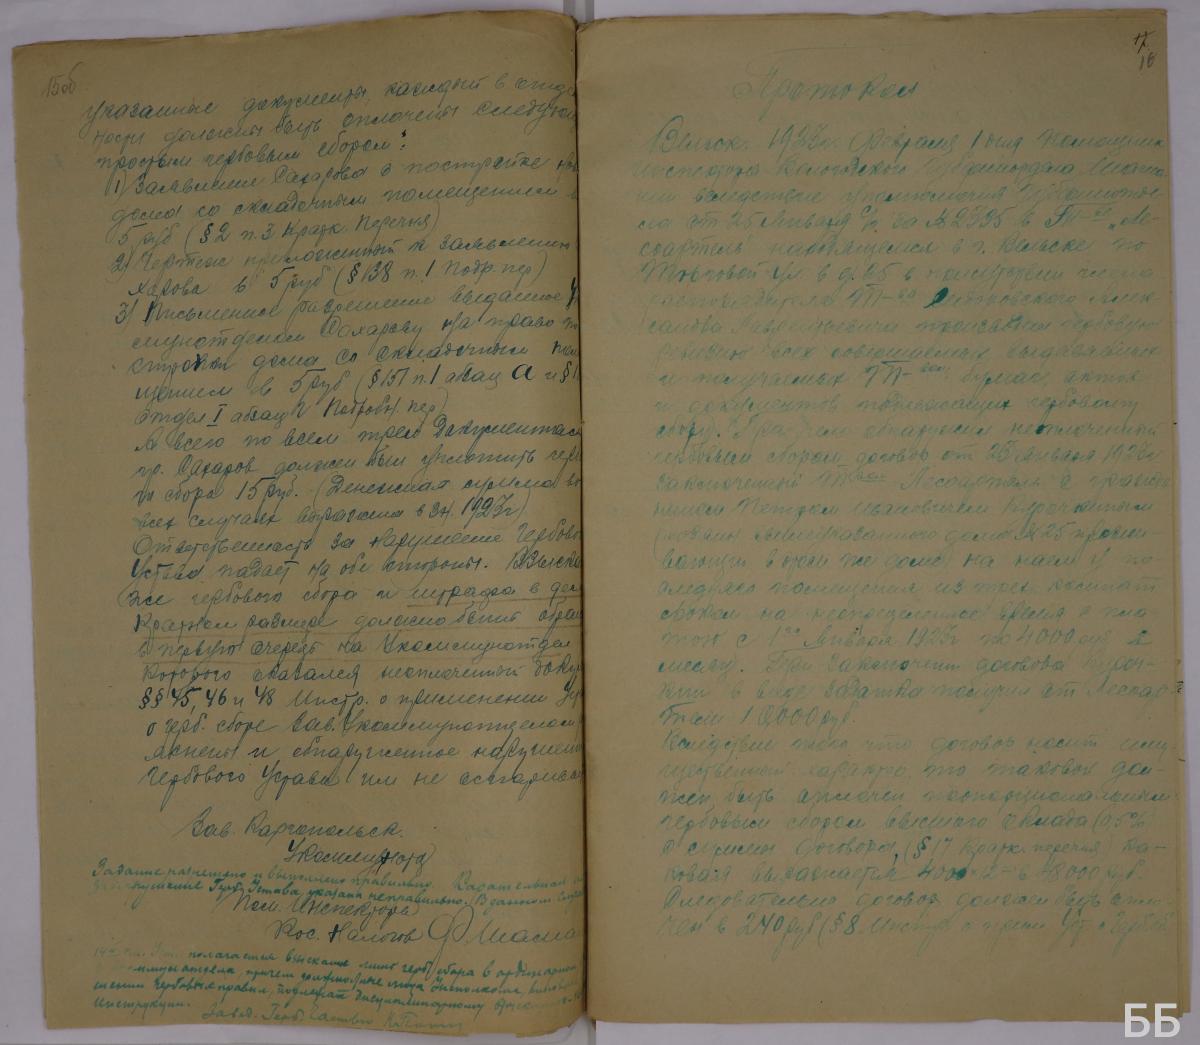 15об
указанные документы, каждый в отде
ности должны быть оплочены следующ
простым гербовым сбором:
1) Заявление Сахарова о постройке
дома со складочным помещением в
5 руб (§ 2 п. 3 Кратк Перечня)
2) Чертеж приложенный к заявлению
харова в 5 руб (§ 138 п. 1 Подр. пер)
3) Письменное разрешение выданное У
мунотделом Сахарову на право по
стройки дома со складочным пом
щением в 5 руб (§ 151 п. 1 абзац а и §
отдел I абзац 2 Подробн. пер)
А всего по всем трем документам
гр. Сахаров должен был уплотить герб
го сбора 15 руб. (Денежная сумма во
всех случаях выражена в зн. 1923г)
Ответственность за нарушение Гербово
Устава падает на обе стороны. Взыска
же гербового сбора и штрафа в деся
кратном размере должно быть обращ
в первую очередь на Укоммунотдел
которого оказался неоплоченный докум
§§ 45, 46 и 48 Инстр. о применении Уст
о герб. сборе Зав. Укоммунотделом
и обнаруженное нарушение
Гербового Устава им не оспаривае
Зав. Каргопольск.
Укоммунотд
Задание разрешено и выполнено правильно.
нарушение Герб. Устава указана неправильно. В данном случае
Пом. Инспектора
Кос. Налогов
полагается взыскание лишь герб. сбора в ординарном
причем должностные лица Уисполкома,
шении гербовых правил, подлежат дисциплинарному
Инструкции.
Завед. Герб. частью
17
16
Протокол
Вельск. 1923г. Февраля 1 дня Помощник
Инспектора Вологодского Губфинотдела
вследствие Губфинотде
ла от 25 Января с/г за № 2395 в
соартель" находящемся в г. Вельске по
Торговой ул. в д. 25 в присутствии члена
Алек
сандра Гавриловича произвели гербовую
ревизию всех совершаемых выдаваемых
и получаемых бумаг, актов
и документов подлежащих гербовому
сбору. При чем обнаружил неоплоченный
гербовым сбором договор от 25 Января 1923г
заключенный Лесоартель с гражда
нином Петром Ивановичем Курочкиным
вышеуказанного дома № 25 прожи
вающим в том же доме на наем у по
следнего помещения из трех комнат
сроком на неопределенное время с пла
тою с 1го Января 1923г по 4000 руб в
месяц. При заключении договора Куроч
кин в виде задатка получил от Лесоар
тели 10000 руб.
Вследствии того что договор носит иму
щественный характер, то таковой дол
жен быть оплочен пропорциональным
гербовым сбором высшего оклада (0,5%)
с суммы договора, (§ 17 Кратк. перечня) ка
ковая выражается 4000×12 = в 48000 руб.
Следовательно договор должен быть опло
чен в 240 руб (§ 8 Инстр о прим Уст о Гербов
ББ